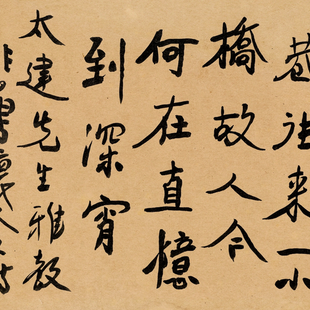 巷往来一小
橋故人今
何在直憶
到深宵
太建先生雅教